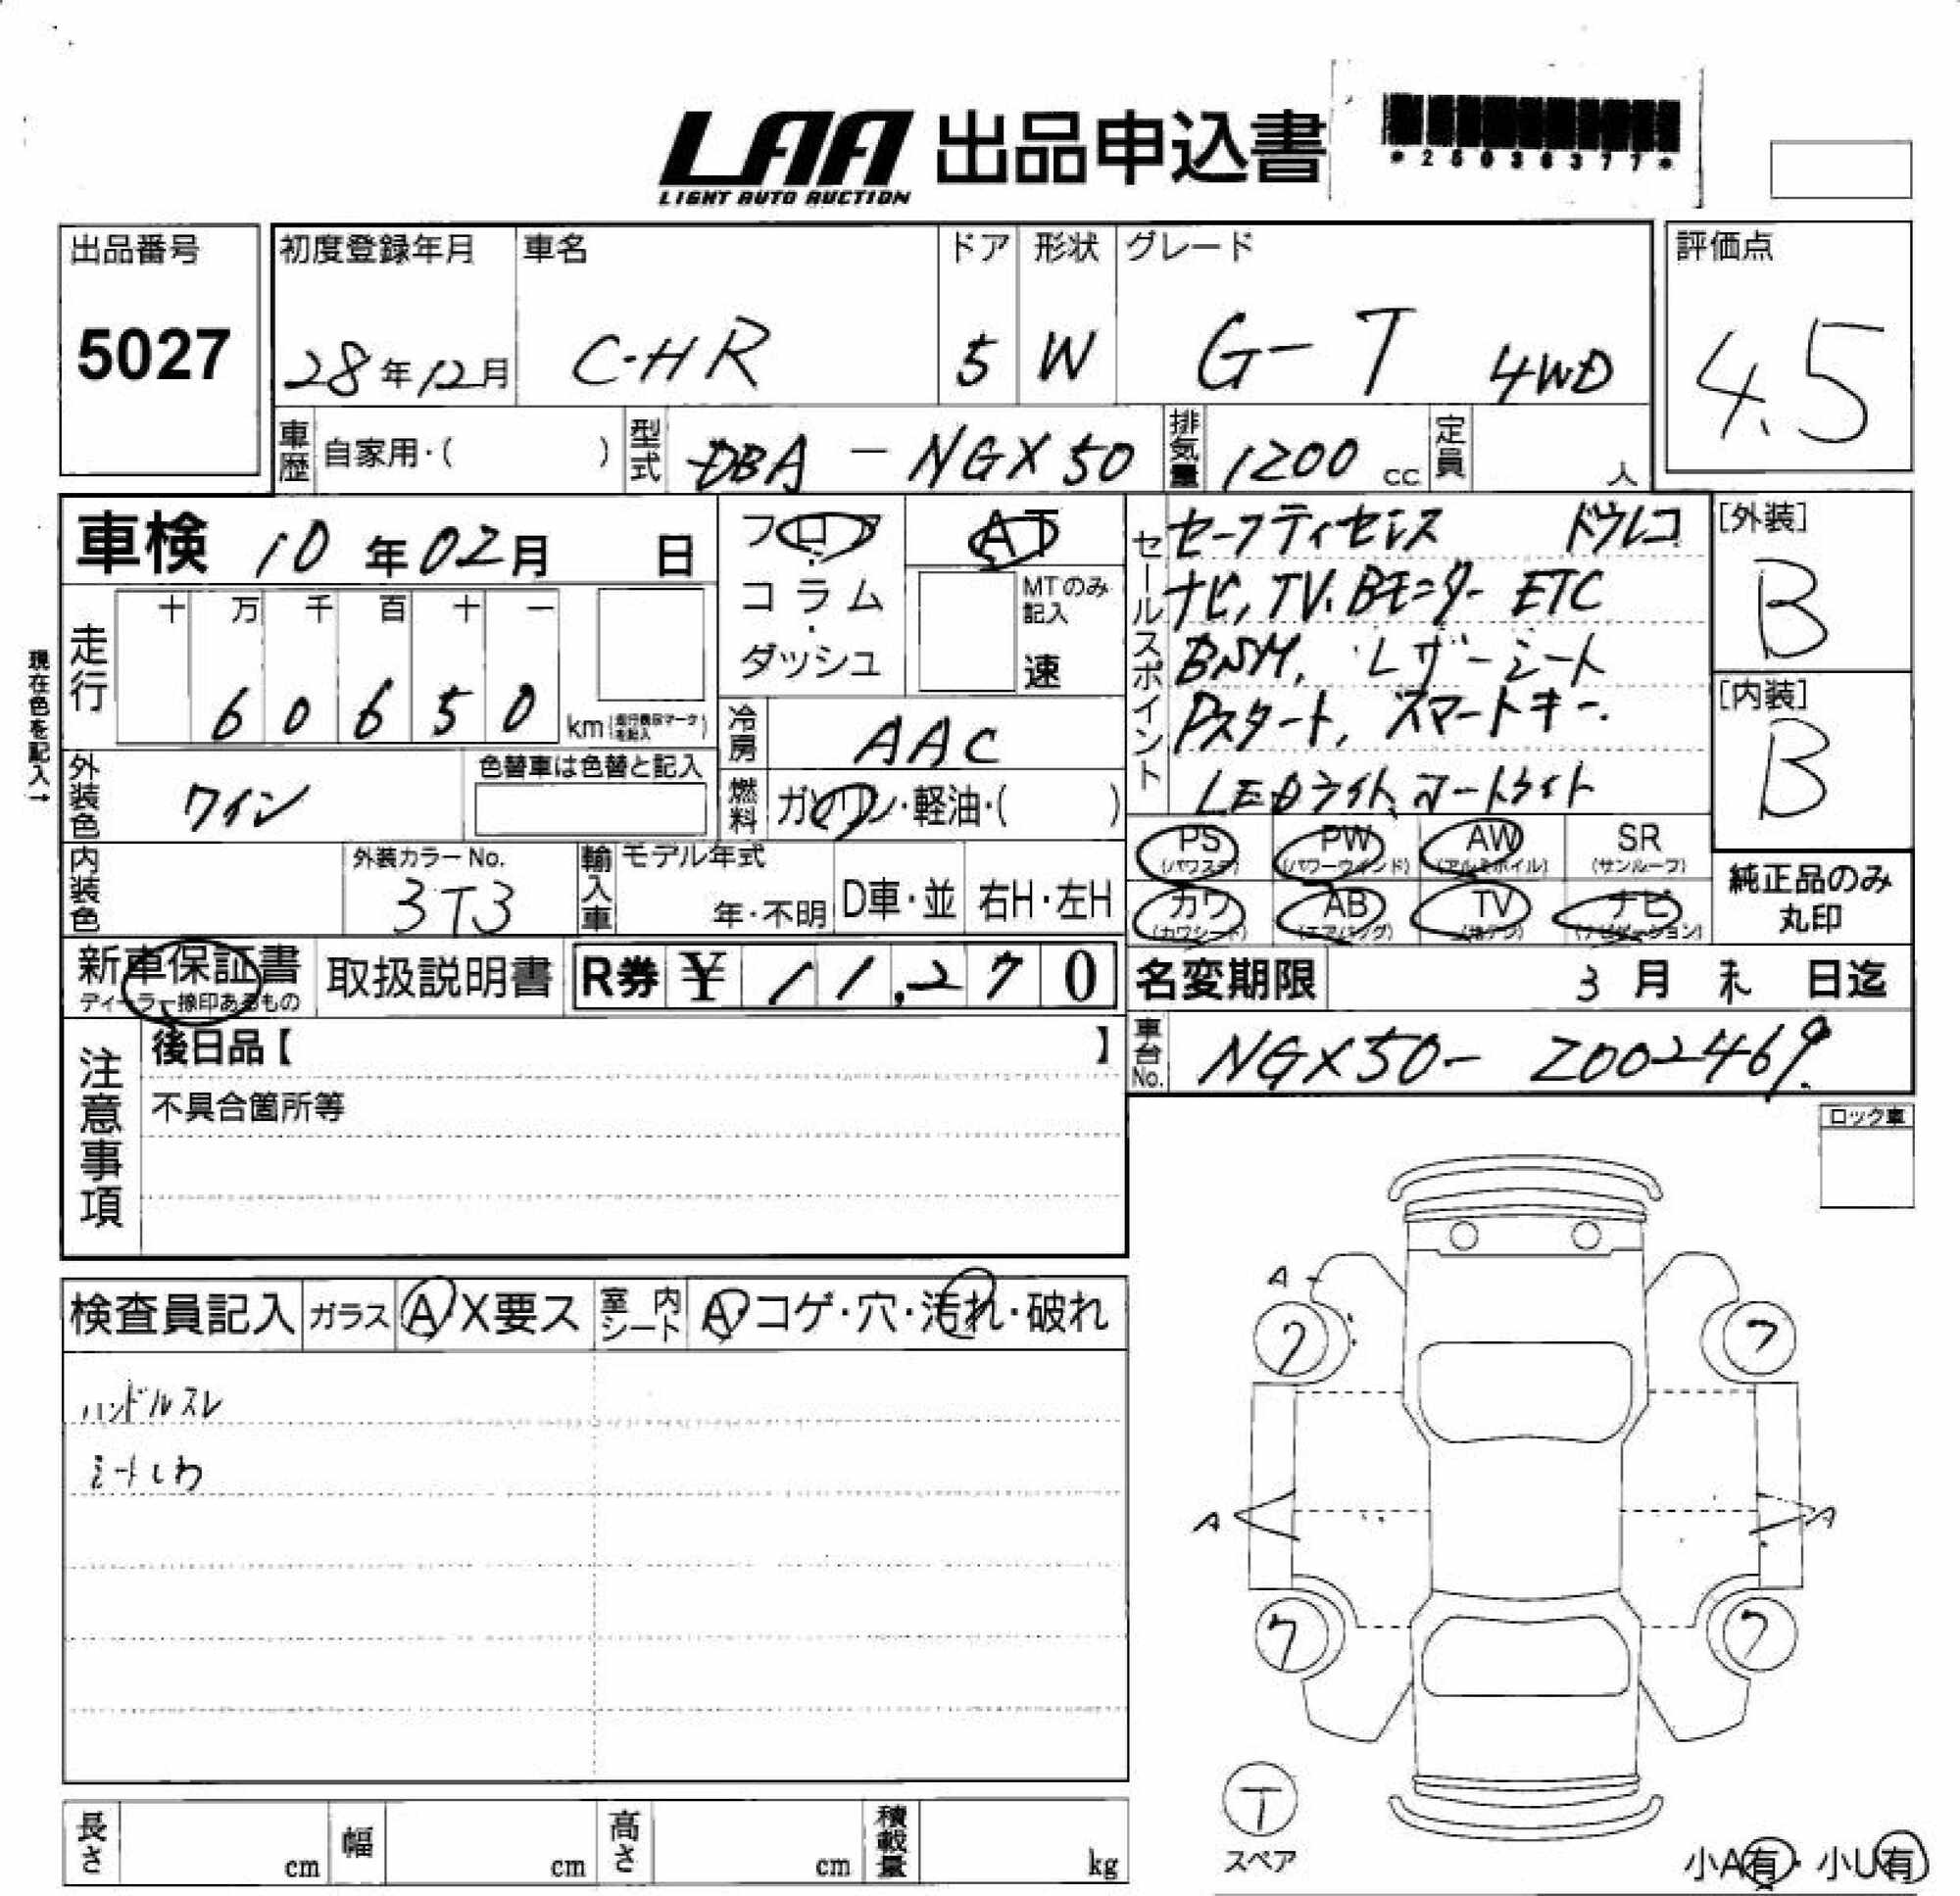 LAA 出品申込書
LIGHT AUTO AUCTION
*25036377*
出品番号 初度登録年月 車名 ドア 形状 グレード 評価点
5027 28年12月 C-HR 5 W G-T 4WD 4.5
車歴 自家用・( ) 型式 DBA-NGX50 排気量 1200 cc 定員 人
車検 10年02月 日
フロア・コラム・ダッシュ
AT
MTのみ記入
速
セールスポイント
セーフティセンス ドラレコ
ナビ,TV.Bモニター ETC
BSM, レザーシート
Pスタート, スマートキー.
LEDライト,オートライト
[外装]
B
[内装]
B
現在色を記入→
走行 十 万 千 百 十 一
6 0 6 5 0 km
冷房 AAC
外装色 ワイン 色替車は色替と記入
燃料 ガソリン・軽油・( )
内装色 外装カラーNo. 3T3
輸入車 モデル年式 年・不明 D車・並 右H・左H
PS (パワステ) PW (パワーウインド) AW (アルミホイル) SR (サンルーフ)
カワ (カワシート) AB (エアバッグ) TV (地デジ) ナビ (ナビゲーション)
純正品のみ
丸印
新車保証書 取扱説明書 R券 ¥ 11,270
ディーラー捺印あるもの
名変期限 3月 末 日迄
車台No. NGX50-2002469
注意事項
後日品【 】
不具合箇所等
ロック車
検査員記入 ガラス A X要ス 室内シート A・コゲ・穴・汚れ・破れ
ハンドルスレ
シートしわ
A
7 7
A A
7 7
T
スペア
小A有・小U有
長さ cm 幅 cm 高さ cm 積載量 kg